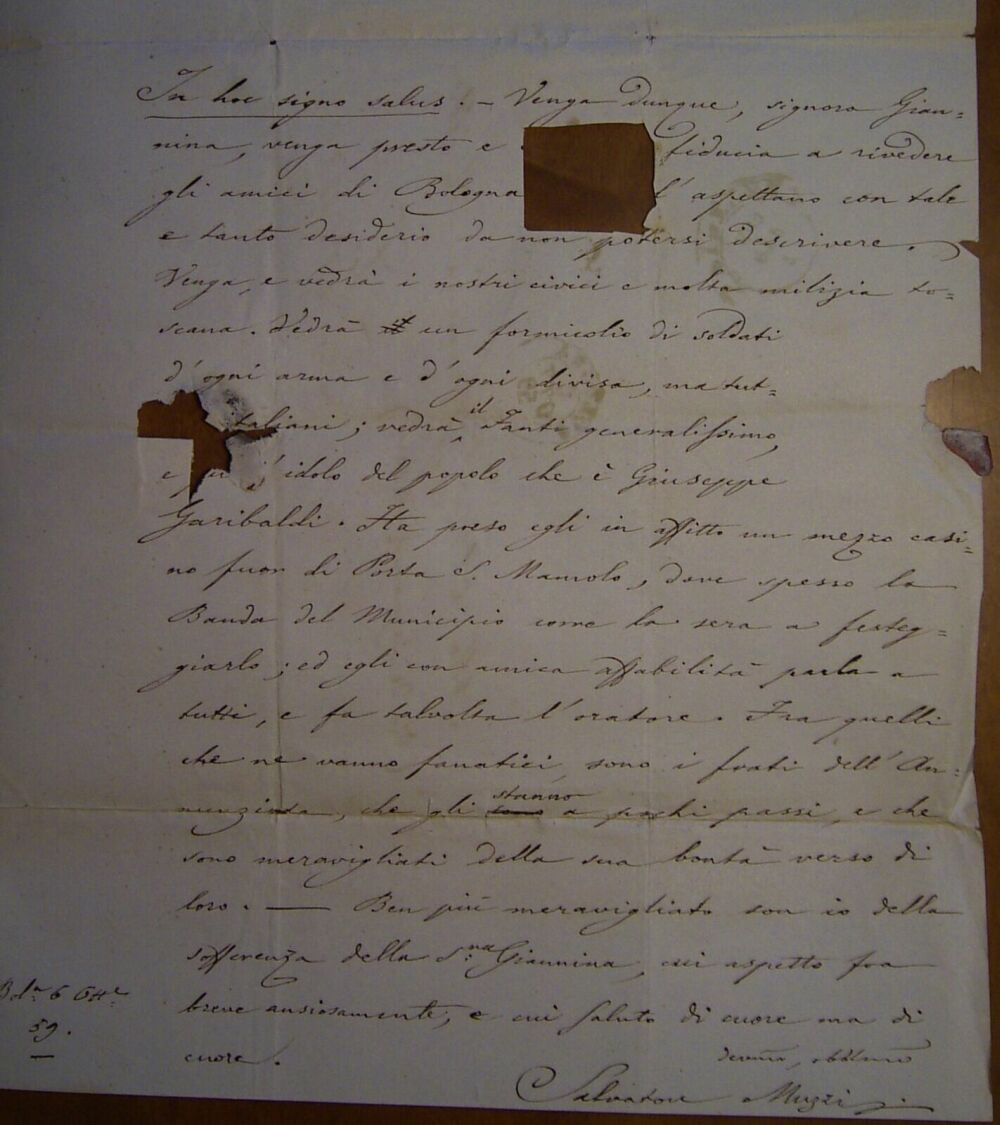 In hoc signo salus. - Venga dunque, signora Gian=
nina, venga presto e fiducia a rivedere
gli amici di Bologna l'aspettano con tale
e tanto desiderio da non potersi descrivere.
Venga, e vedrà i nostri civici e molta milizia to=
scana. Vedrà un formicolio di soldati
d'ogni arma e d'ogni divisa, ma tut=
taliani; vedrà il Fanti generalissimo,
e l'idolo del popolo che è Giuseppe
Garibaldi. Ha preso egli in affitto un mezzo casi=
no fuor di Porta S. Mamolo, dove spesso la
Banda del Municipio corre la sera a festeg=
giarlo; ed egli con amica affabilità parla a
tutti, e fa talvolta l'oratore. Fra quelli
che ne vanno fanatici, sono i frati dell'An=
nunziata, che gli stanno a pochi passi, e che
sono meravigliati della sua bontà verso di
loro. — Ben più meravigliato son io della
sofferenza della S.ra Giannina, cui aspetto fra
breve ansiosamente, e cui saluto di cuore ma di
cuore.
Bol.a 6 Ott.e
59.
devmo, obblmo
Salvatore Muzzi